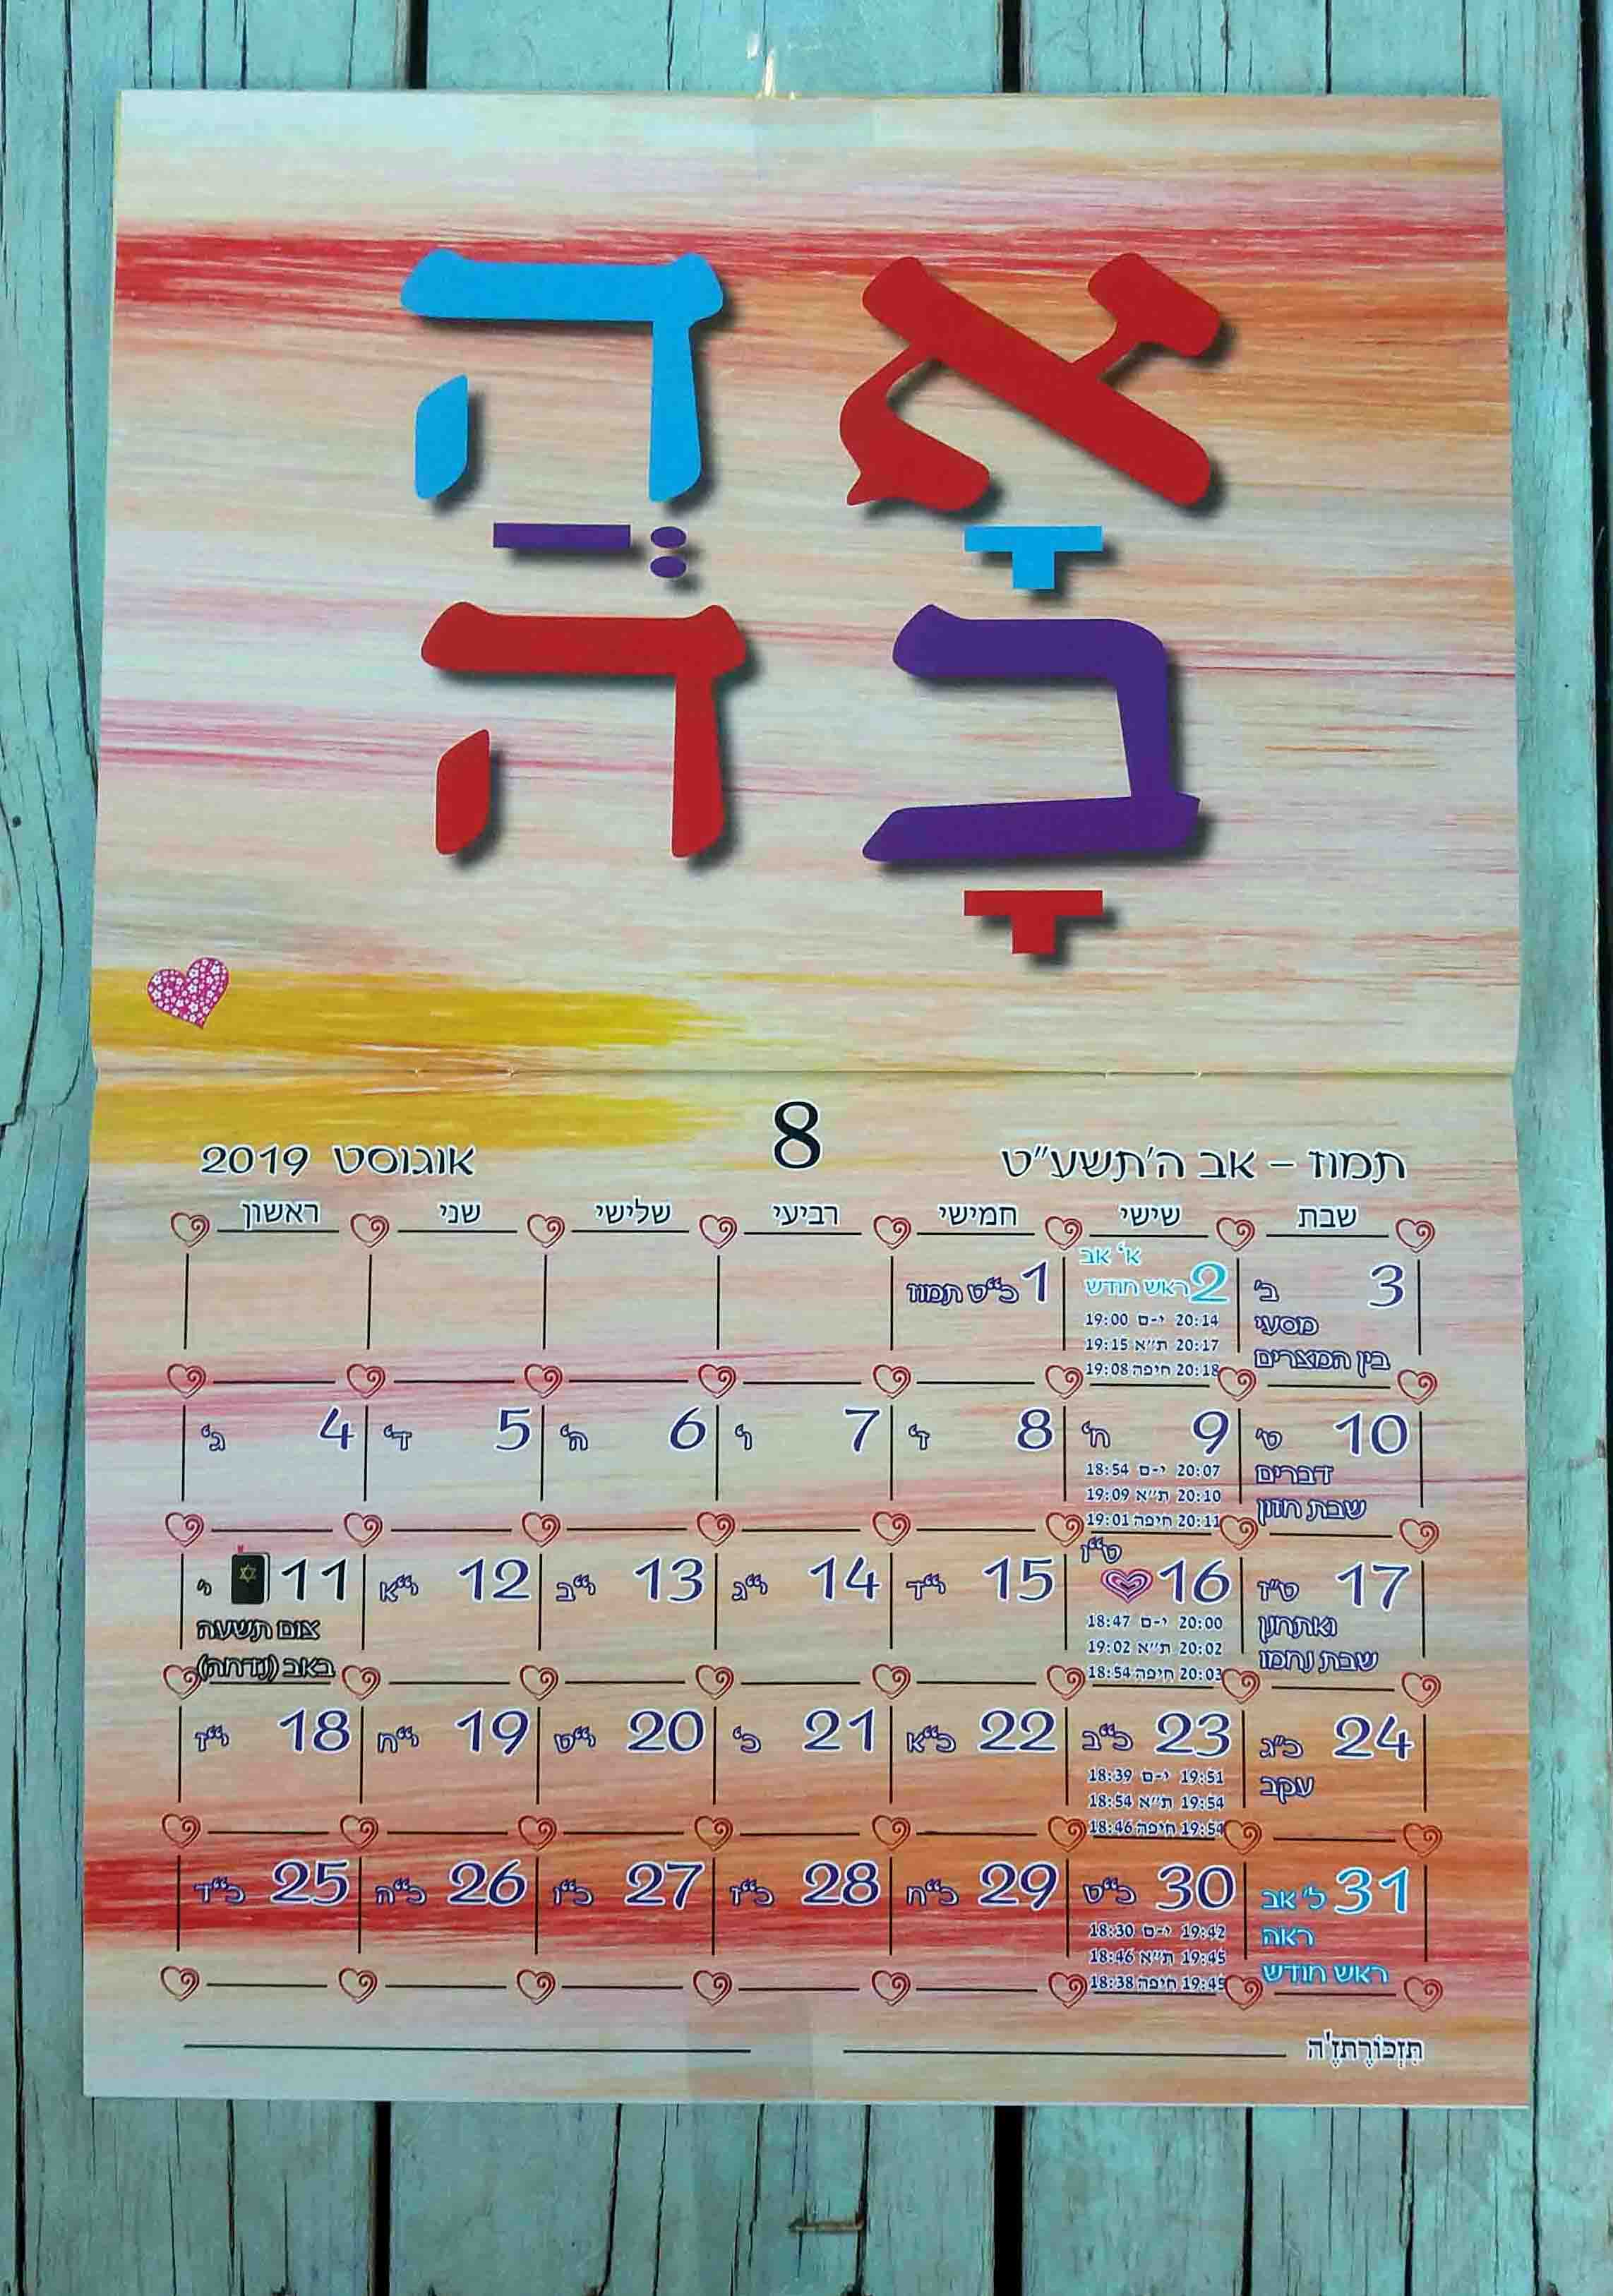 אָהֲ
בָה
8
תמוז – אב ה'תשע"ט
אוגוסט 2019
ראשון שני שלישי רביעי חמישי שישי שבת
1 כ"ט תמוז
א' אב
2 ראש חודש
19:00 י-ם 20:14
19:15 ת"א 20:17
19:08 חיפה 20:18
3 ב'
מסעי
בין המצרים
4 ג'
5 ד'
6 ה'
7 ו'
8 ז'
9 ח'
18:54 י-ם 20:07
19:09 ת"א 20:10
19:01 חיפה 20:11
10 ט'
דברים
שבת חזון
11 י'
צום תשעה
באב (נדחה)
12 י"א
13 י"ב
14 י"ג
15 י"ד
ט"ו
16
18:47 י-ם 20:00
19:02 ת"א 20:02
18:54 חיפה 20:03
17 ט"ז
ואתחנן
שבת נחמו
18 י"ז
19 י"ח
20 י"ט
21 כ'
22 כ"א
23 כ"ב
18:39 י-ם 19:51
18:54 ת"א 19:54
18:46 חיפה 19:54
24 כ"ג
עקב
25 כ"ד
26 כ"ה
27 כ"ו
28 כ"ז
29 כ"ח
30 כ"ט
18:30 י-ם 19:42
18:46 ת"א 19:45
18:38 חיפה 19:45
31 ל' אב
ראה
ראש חודש
תִזְכּוֹרֶתזֶ'ה